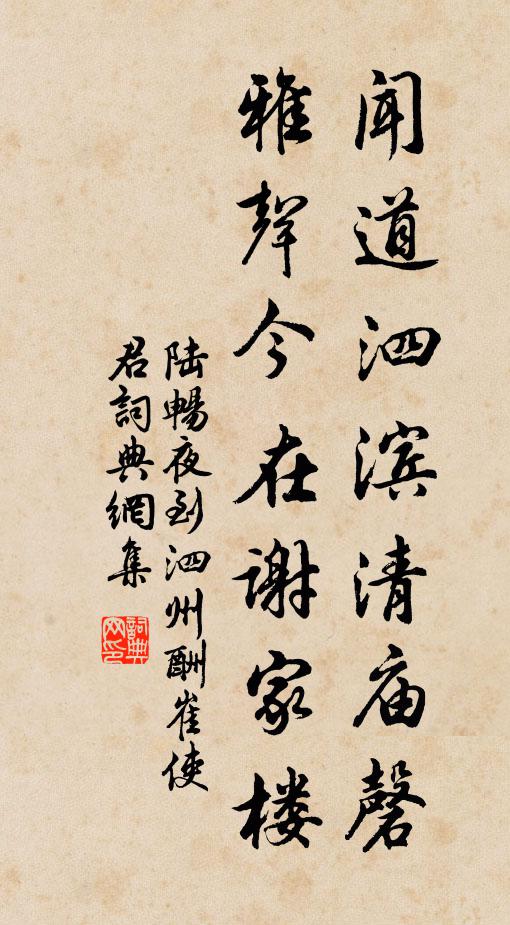 闻道泗滨清庙磬
雅聲今在谢家楼
陆暢夜到泗州酬崔使
君詞典網集
詞典网印